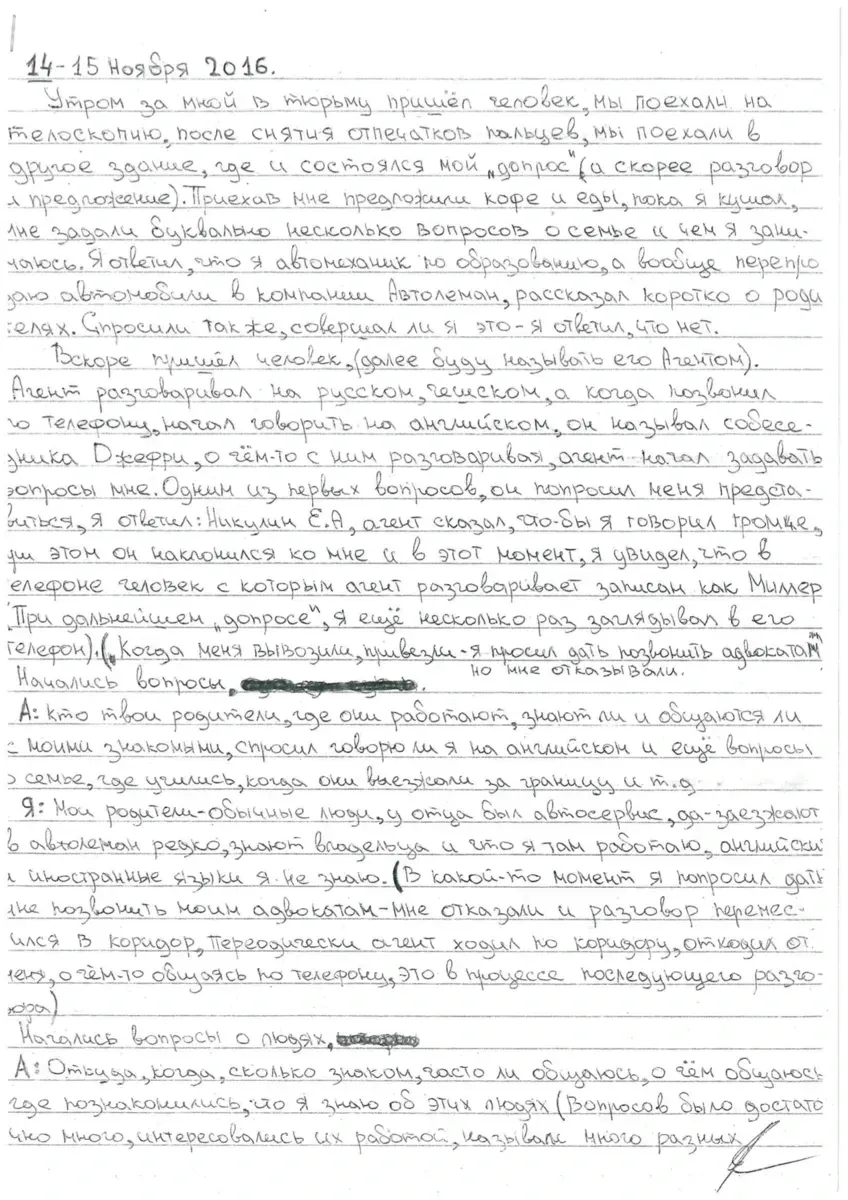 14-15 Ноября 2016.
Утром за мной в тюрьму пришёл человек, мы поехали на
телоскопию, после снятия отпечатков пальцев, мы поехали в
другое здание, где и состоялся мой „допрос" (а скорее разговор
и предложение). Приехав мне предложили кофе и еды, пока я кушал,
мне задали буквально несколько вопросов о семье и чем я зани-
маюсь. Я ответил, что я автомеханик по образованию, а вообще перепро
даю автомобили в компании Автолеман, рассказал коротко о роди
телях. Спросили также, совершал ли я это-я ответил, что нет.
Вскоре пришёл человек, (далее буду называть его Агентом).
Агент разговаривал на русском, чешском, а когда позвонил
по телефону, начал говорить на английском, он называл собесе-
дника Джефри, о чём-то с ним разговаривая, агент начал задавать
вопросы мне. Одним из первых вопросов, он попросил меня предста-
виться, я ответил: Никулин Е.А, агент сказал, что-бы я говорил громче,
при этом он наклонился ко мне и в этот момент, я увидел, что в
телефоне человек с которым агент разговаривает записан как Миллер
(При дальнейшем „допросе", я ещё несколько раз заглядывал в его
телефон). (Когда меня вывозили, привезли-я просил дать позвонить адвокатам
но мне отказывали.
Начались вопросы,
А: Кто твои родители, где они работают, знают ли и общаются ли
с моими знакомыми, спросил говорю ли я на английском и ещё вопросы
о семье, где учились, когда они выезжали за границу и т.д
Я: Мои родители-обычные люди, у отца был автосервис, да-заезжают
в автолеман редко, знают владельца и что я там работаю, английский
и иностранные языки я не знаю. (В какой-то момент я попросил дать
мне позвонить моим адвокатам-мне отказали и разговор перемес-
тился в коридор, переодически агент ходил по коридору, отходил от
меня, о чём-то общаясь по телефону, это в процессе последующего разго-
вора)
Начались вопросы о людях,
А: Откуда, когда, сколько знаком, часто ли общаюсь, о чём общаюсь
где познакомились, что я знаю об этих людях (Вопросов было достато
чно много, интересовались их работой, называли много разных